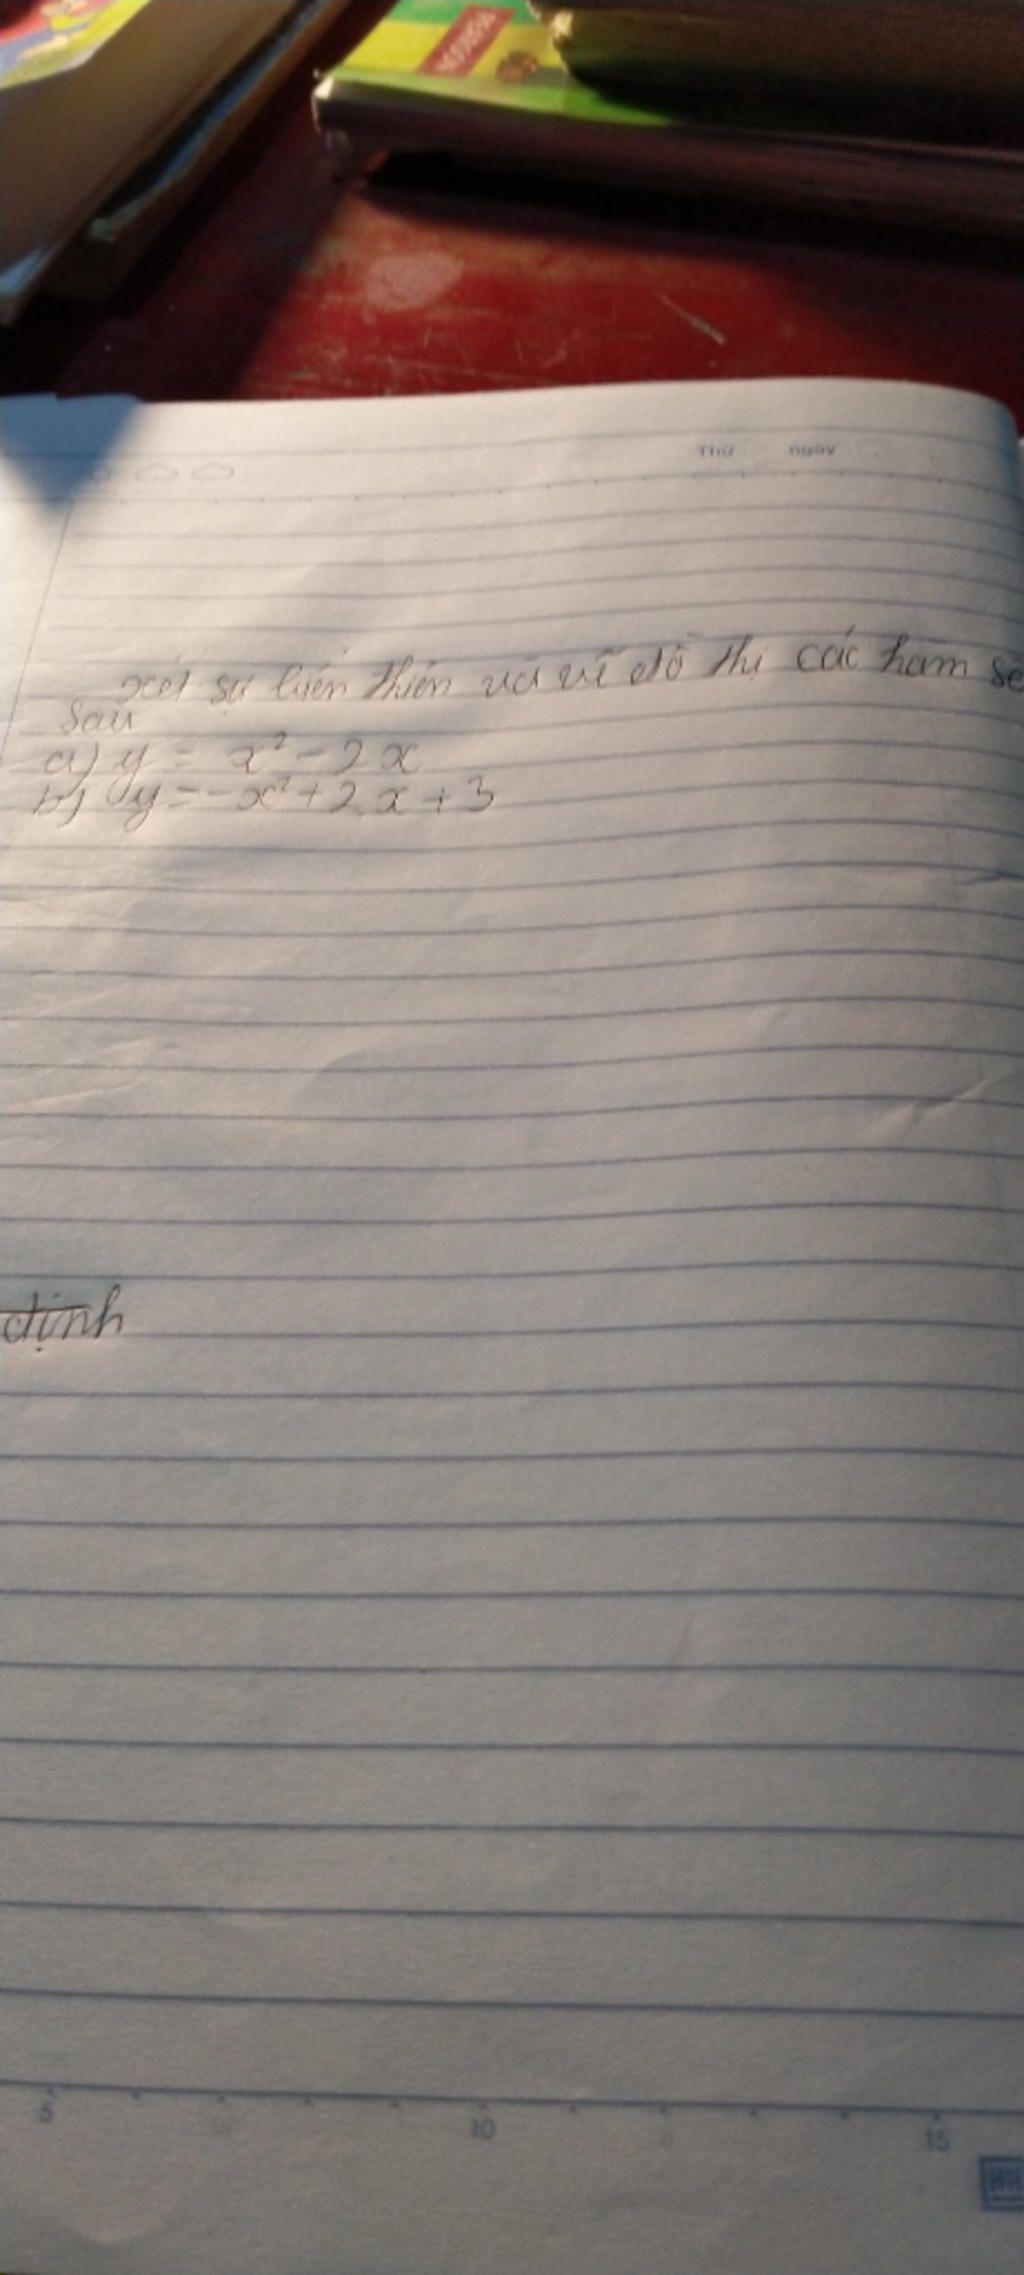 Thứ ngày
xét sự biến thiên và vẽ đồ thị các hàm số
sau
a) y = x² - 2x
b) y = -x² + 2x + 3
định
5 10 15